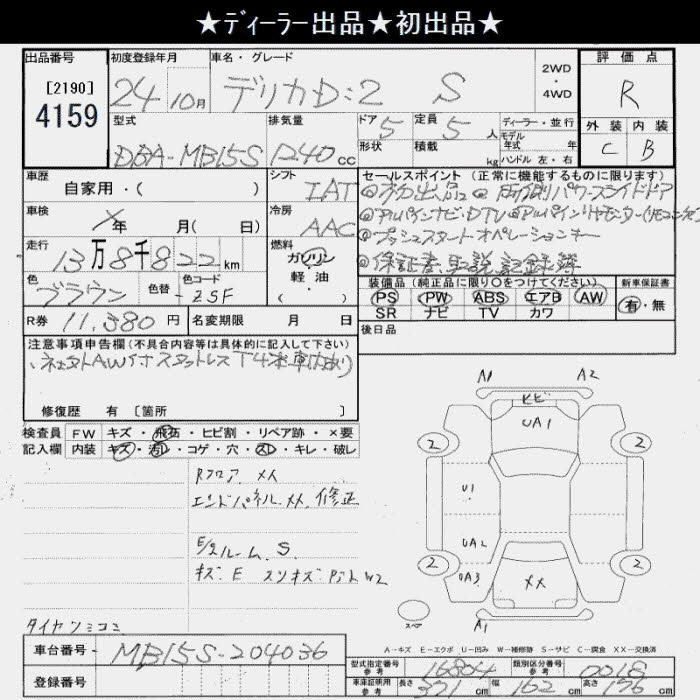 ★ディーラー出品★初出品★
出品番号 初度登録年月 車名・グレード 2WD ・ 4WD 評価点
[2190]
4159
24 10月 デリカD:2 S R
型式 排気量 ドア 定員 ディーラー・並行 外装 内装
DBA-MB15S 1240 cc 5 5人 モデル年式 年式 C B
形状 積載 kg ハンドル 左・右
車歴 自家用・( ) シフト IAT
セールスポイント (正常に機能するものに限ります)
◎初出品◎両側パワースライドドア
車検 ×年 月( 日) 冷房 AAC
◎プッシュスタートオペレーションキー
◎保証書、取説、記録簿
走行 13万8千822km 燃料 ガソリン 軽・油 ( )
色 ブラウン 色替 - 色コード ZSF
装備品 (純正品に限り○をつけてください) 新車保証書
PS PW ABS エアB AW 有・無
SR ナビ TV カワ
R券 11,380円 名変期限 月 日
後日品
注意事項申告欄(不具合内容等は具体的に記入して下さい)
修復歴 有 [箇所 ]
検査員 FW キズ・飛石・ヒビ割・リペア跡・×要
記入欄 内装 キズ・汚レ・コゲ・穴・スレ・キレ・破レ
Rフロア XX
エンドパネル XX 修正
E/gルーム S
キズ E スリキズ
タイヤンミコミ
A1 A2
ヒビ
UA1
2 2
U1
UA2
2 2
UA3 XX
スペア A1
A-キズ E-エクボ U-凹み W-補修跡 S-サビ C-腐食 XX-交換済
車台番号 MB15S-204036
型式指定番号 参考 16804 類別区分番号 参考 0018
登録番号
車庫証明用 参考 長さ 371 cm 幅 162 cm 高さ 176 cm